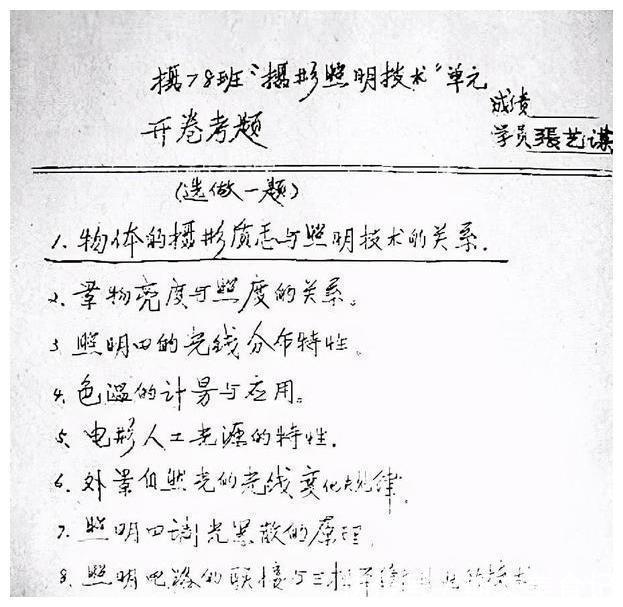 摄78班"摄影照明技术"单元
开卷考题
成绩
学员張艺谋
(选做一题)
1. 物体的摄影质志与照明技术的关系.
2. 景物亮度与照度的关系。
3 照明口的光线分布特性。
4. 色温的计算与应用。
5. 电影人工光源的特性.
6. 外景自然光的光线变化规律.
7. 照明口调光聚散的原理.
8. 照明电路的联接与三相平衡的技术